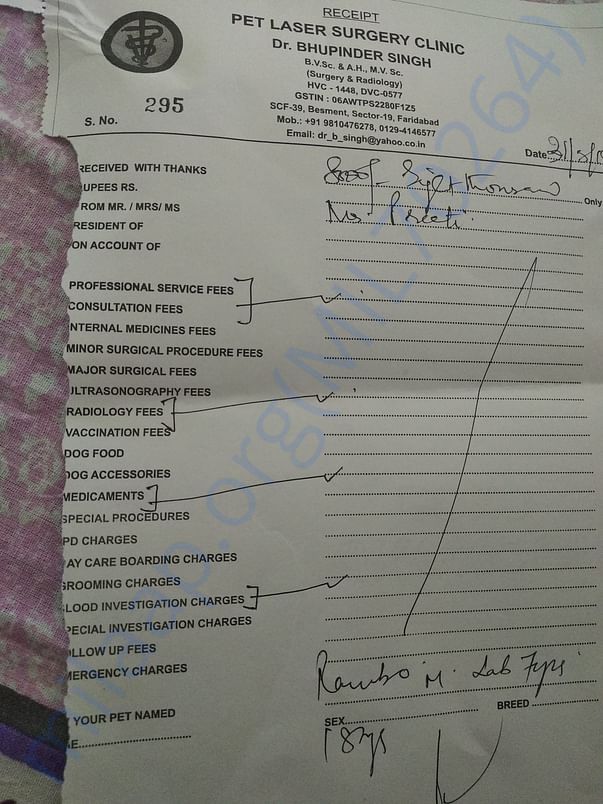 RECEIPT
PET LASER SURGERY CLINIC
Dr. BHUPINDER SINGH
B.V.Sc. & A.H., M.V. Sc.
(Surgery & Radiology)
HVC - 1448, DVC-0577
GSTIN : 06AWTPS2280F1Z5
SCF-39, Besment, Sector-19, Faridabad
Mob.: +91 9810476278, 0129-4146577
Email: dr_b_singh@yahoo.co.in
S. No. 295
Date
RECEIVED WITH THANKS
UPEES RS. 8000/- Eight thousand Only
FROM MR. / MRS/ MS Preeti
RESIDENT OF
ON ACCOUNT OF
PROFESSIONAL SERVICE FEES
CONSULTATION FEES
INTERNAL MEDICINES FEES
MINOR SURGICAL PROCEDURE FEES
MAJOR SURGICAL FEES
ULTRASONOGRAPHY FEES
RADIOLOGY FEES
VACCINATION FEES
DOG FOOD
DOG ACCESSORIES
MEDICAMENTS
SPECIAL PROCEDURES
PD CHARGES
AY CARE BOARDING CHARGES
GROOMING CHARGES
LOOD INVESTIGATION CHARGES
PECIAL INVESTIGATION CHARGES
LLOW UP FEES
MERGENCY CHARGES
Rambo M. Lab
YOUR PET NAMED
SEX BREED
E